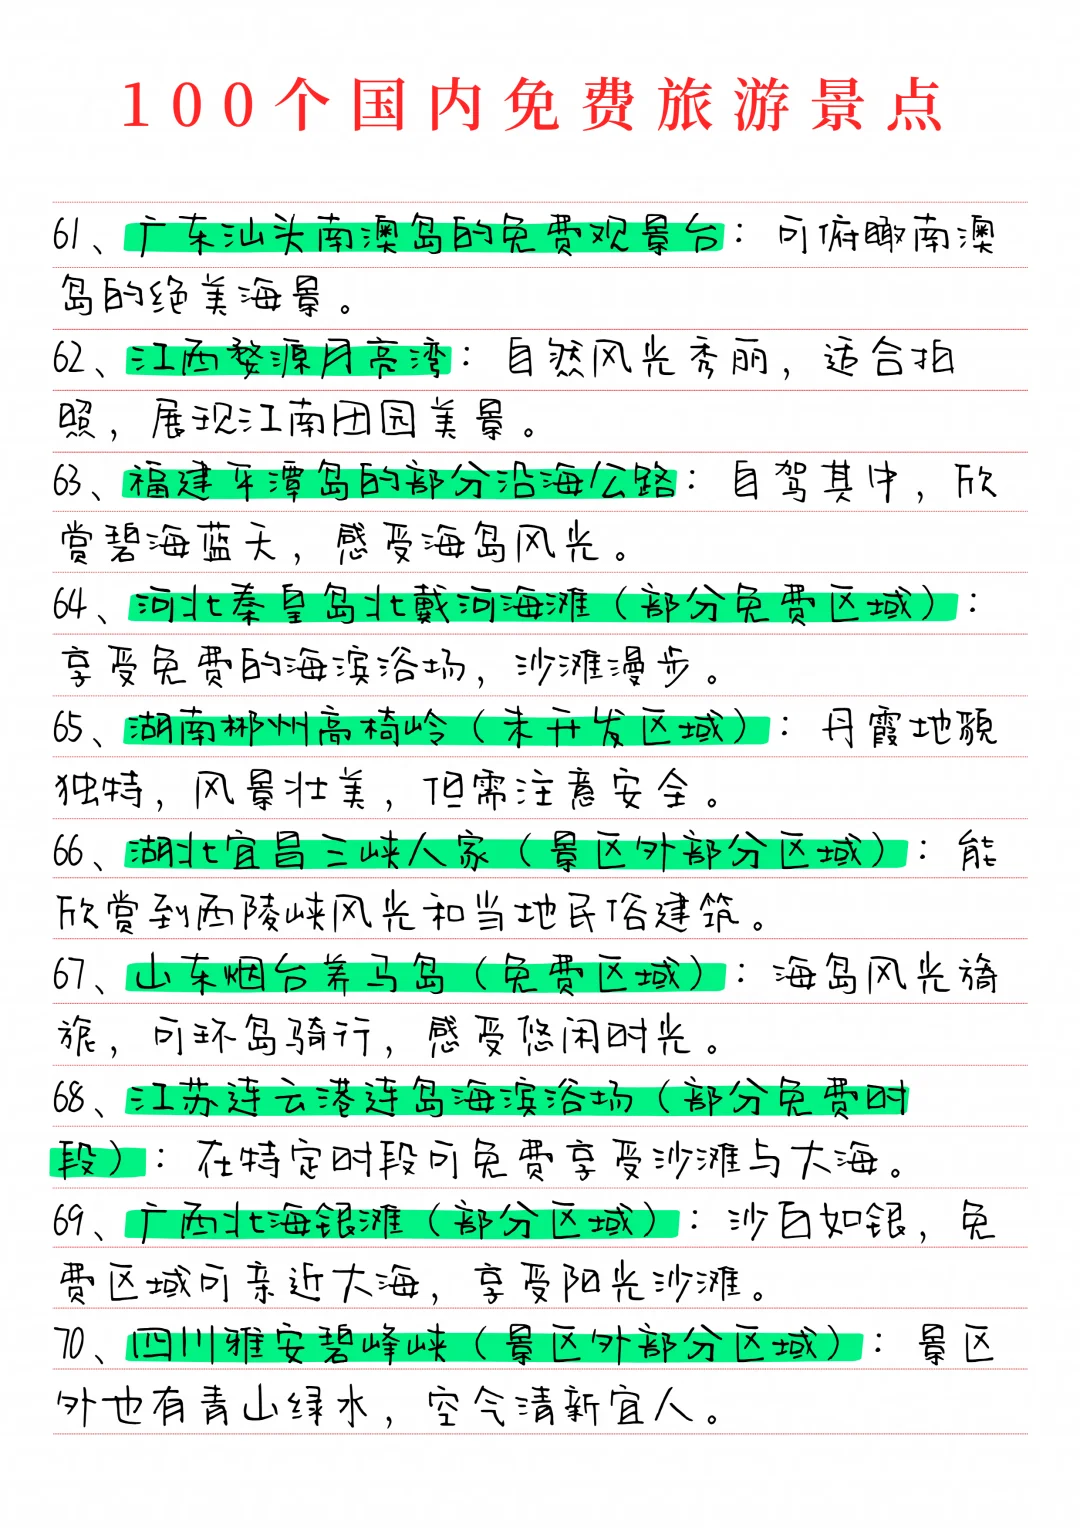 100个国内免费旅游景点
61、广东汕头南澳岛的免费观景台：可俯瞰南澳
岛的绝美海景。
62、江西婺源月亮湾：自然风光秀丽，适合拍
照，展现江南田园美景。
63、福建平潭岛的部分沿海公路：自驾其中，欣
赏碧海蓝天，感受海岛风光。
64、河北秦皇岛北戴河海滩（部分免费区域）：
享受免费的海滨浴场，沙滩漫步。
65、湖南郴州高椅岭（未开发区域）：丹霞地貌
独特，风景壮美，但需注意安全。
66、湖北宜昌三峡人家（景区外部分区域）：能
欣赏到西陵峡风光和当地民俗建筑。
67、山东烟台养马岛（免费区域）：海岛风光旖
旎，可环岛骑行，感受悠闲时光。
68、江苏连云港连岛海滨浴场（部分免费时
段）：在特定时段可免费享受沙滩与大海。
69、广西北海银滩（部分区域）：沙白如银，免
费区域可亲近大海，享受阳光沙滩。
70、四川雅安碧峰峡（景区外部分区域）：景区
外也有青山绿水，空气清新宜人。